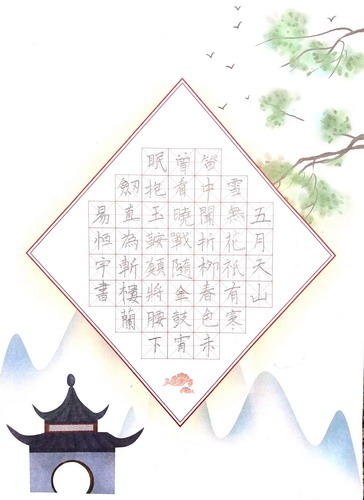 五月天山
雪無花祇有寒
笛中聞折柳春色未
曾看曉戰隨金鼓宵
眠抱玉鞍願將腰下
劒直為斬樓蘭
易恒宇書